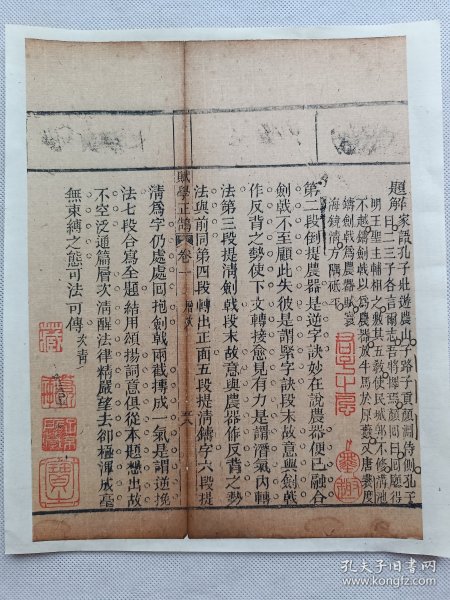 題解家語孔子北遊農山子路子貢顏淵侍側孔子
曰二三子各言爾志吾將擇焉顏回曰回願得
明王聖主輔相之敷其五教使民城郭不修溝池
不越鑄劍戟以為農器放牛馬於原藪 文唐裴度
鑄劍戟為農器賦寰
海鏡清方隅砥平
第二段倒提農器是逆字訣妙在說農器便已融合
劍戟不至顧此失彼是謂緊字訣段末故意與劍戟
作反背之勢使下文轉接愈見有力是謂潛氣內轉
法第三段提清劍戟段末故意與農器作反背之勢
法與前同第四段轉出正面五段提清鑄字六段提
清為字仍處處回抱劍戟兩截摶成一氣是謂逆挽
法七段合寫全題結用頌揚詞意但從本題想出故
不空泛通篇層次清醒法律精嚴望去卻極渾成毫
無束縛之態可法可傳
賦學正鵠 卷一
孔夫子旧书网
www.kongfz.com